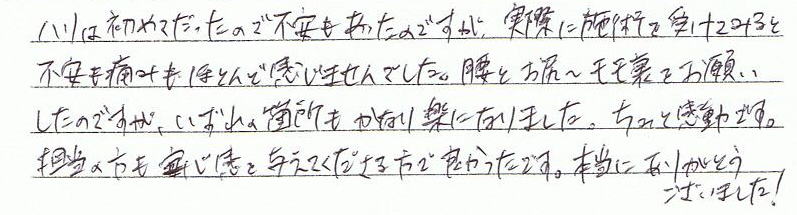 ハリは初めてだったので不安もあったのですが、実際に施術を受けてみると
不安も痛みもほとんど感じませんでした。腰とお尻～モモ裏をお願い
したのですが、いずれの箇所もかなり楽になりました。ちょっと感動です。
担当の方も安心感を与えてくださる方で良かったです。本当にありがとう
ございました!